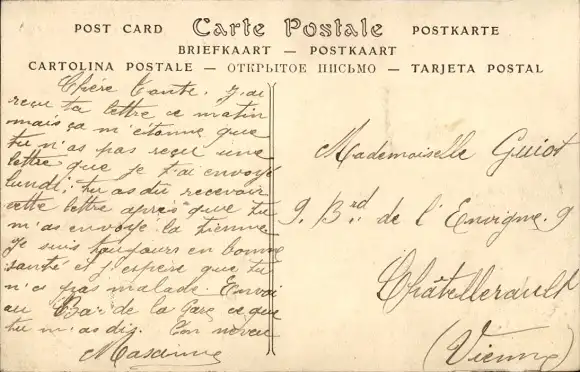 POST CARD Carte Postale POSTKARTE
BRIEFKAART — POSTKAART
CARTOLINA POSTALE — ОТКРЫТОЕ ПИСЬМО — TARJETA POSTAL
Chère Tante. J'ai
reçu ta lettre ce matin
mais ça m'étonne que
tu n'as pas reçu une
lettre que je t'ai envoyé
lundi; tu as du recevoir
cette lettre après que tu
m'as envoyé la tienne
Je suis toujours en bonne
santé et j'espère que tu
n'es pas malade. Envoi
au Bar de la Gare ce que
tu m'as dis. Ton neveu
Mademoiselle Guiot
9. Bd. de l'Envigne. 9
Châtellerault
(Vienne)